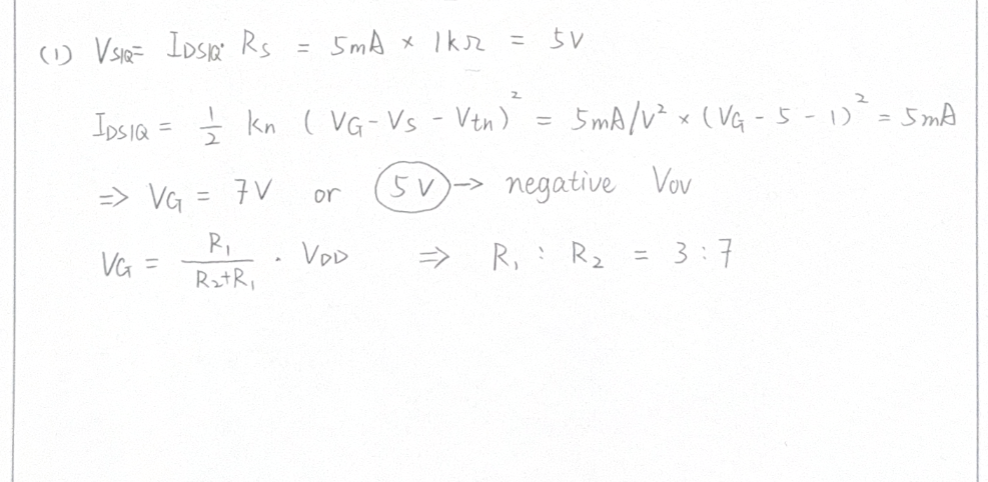 (1) VS1Q = IDS1Q · RS = 5mA × 1kΩ = 5V
IDS1Q = 1/2 kn (VG - VS - Vtn)² = 5mA/V² × (VG - 5 - 1)² = 5mA
⇒ VG = 7V or 5V → negative Vov
VG = R1/(R2+R1) · VDD ⇒ R1 : R2 = 3 : 7